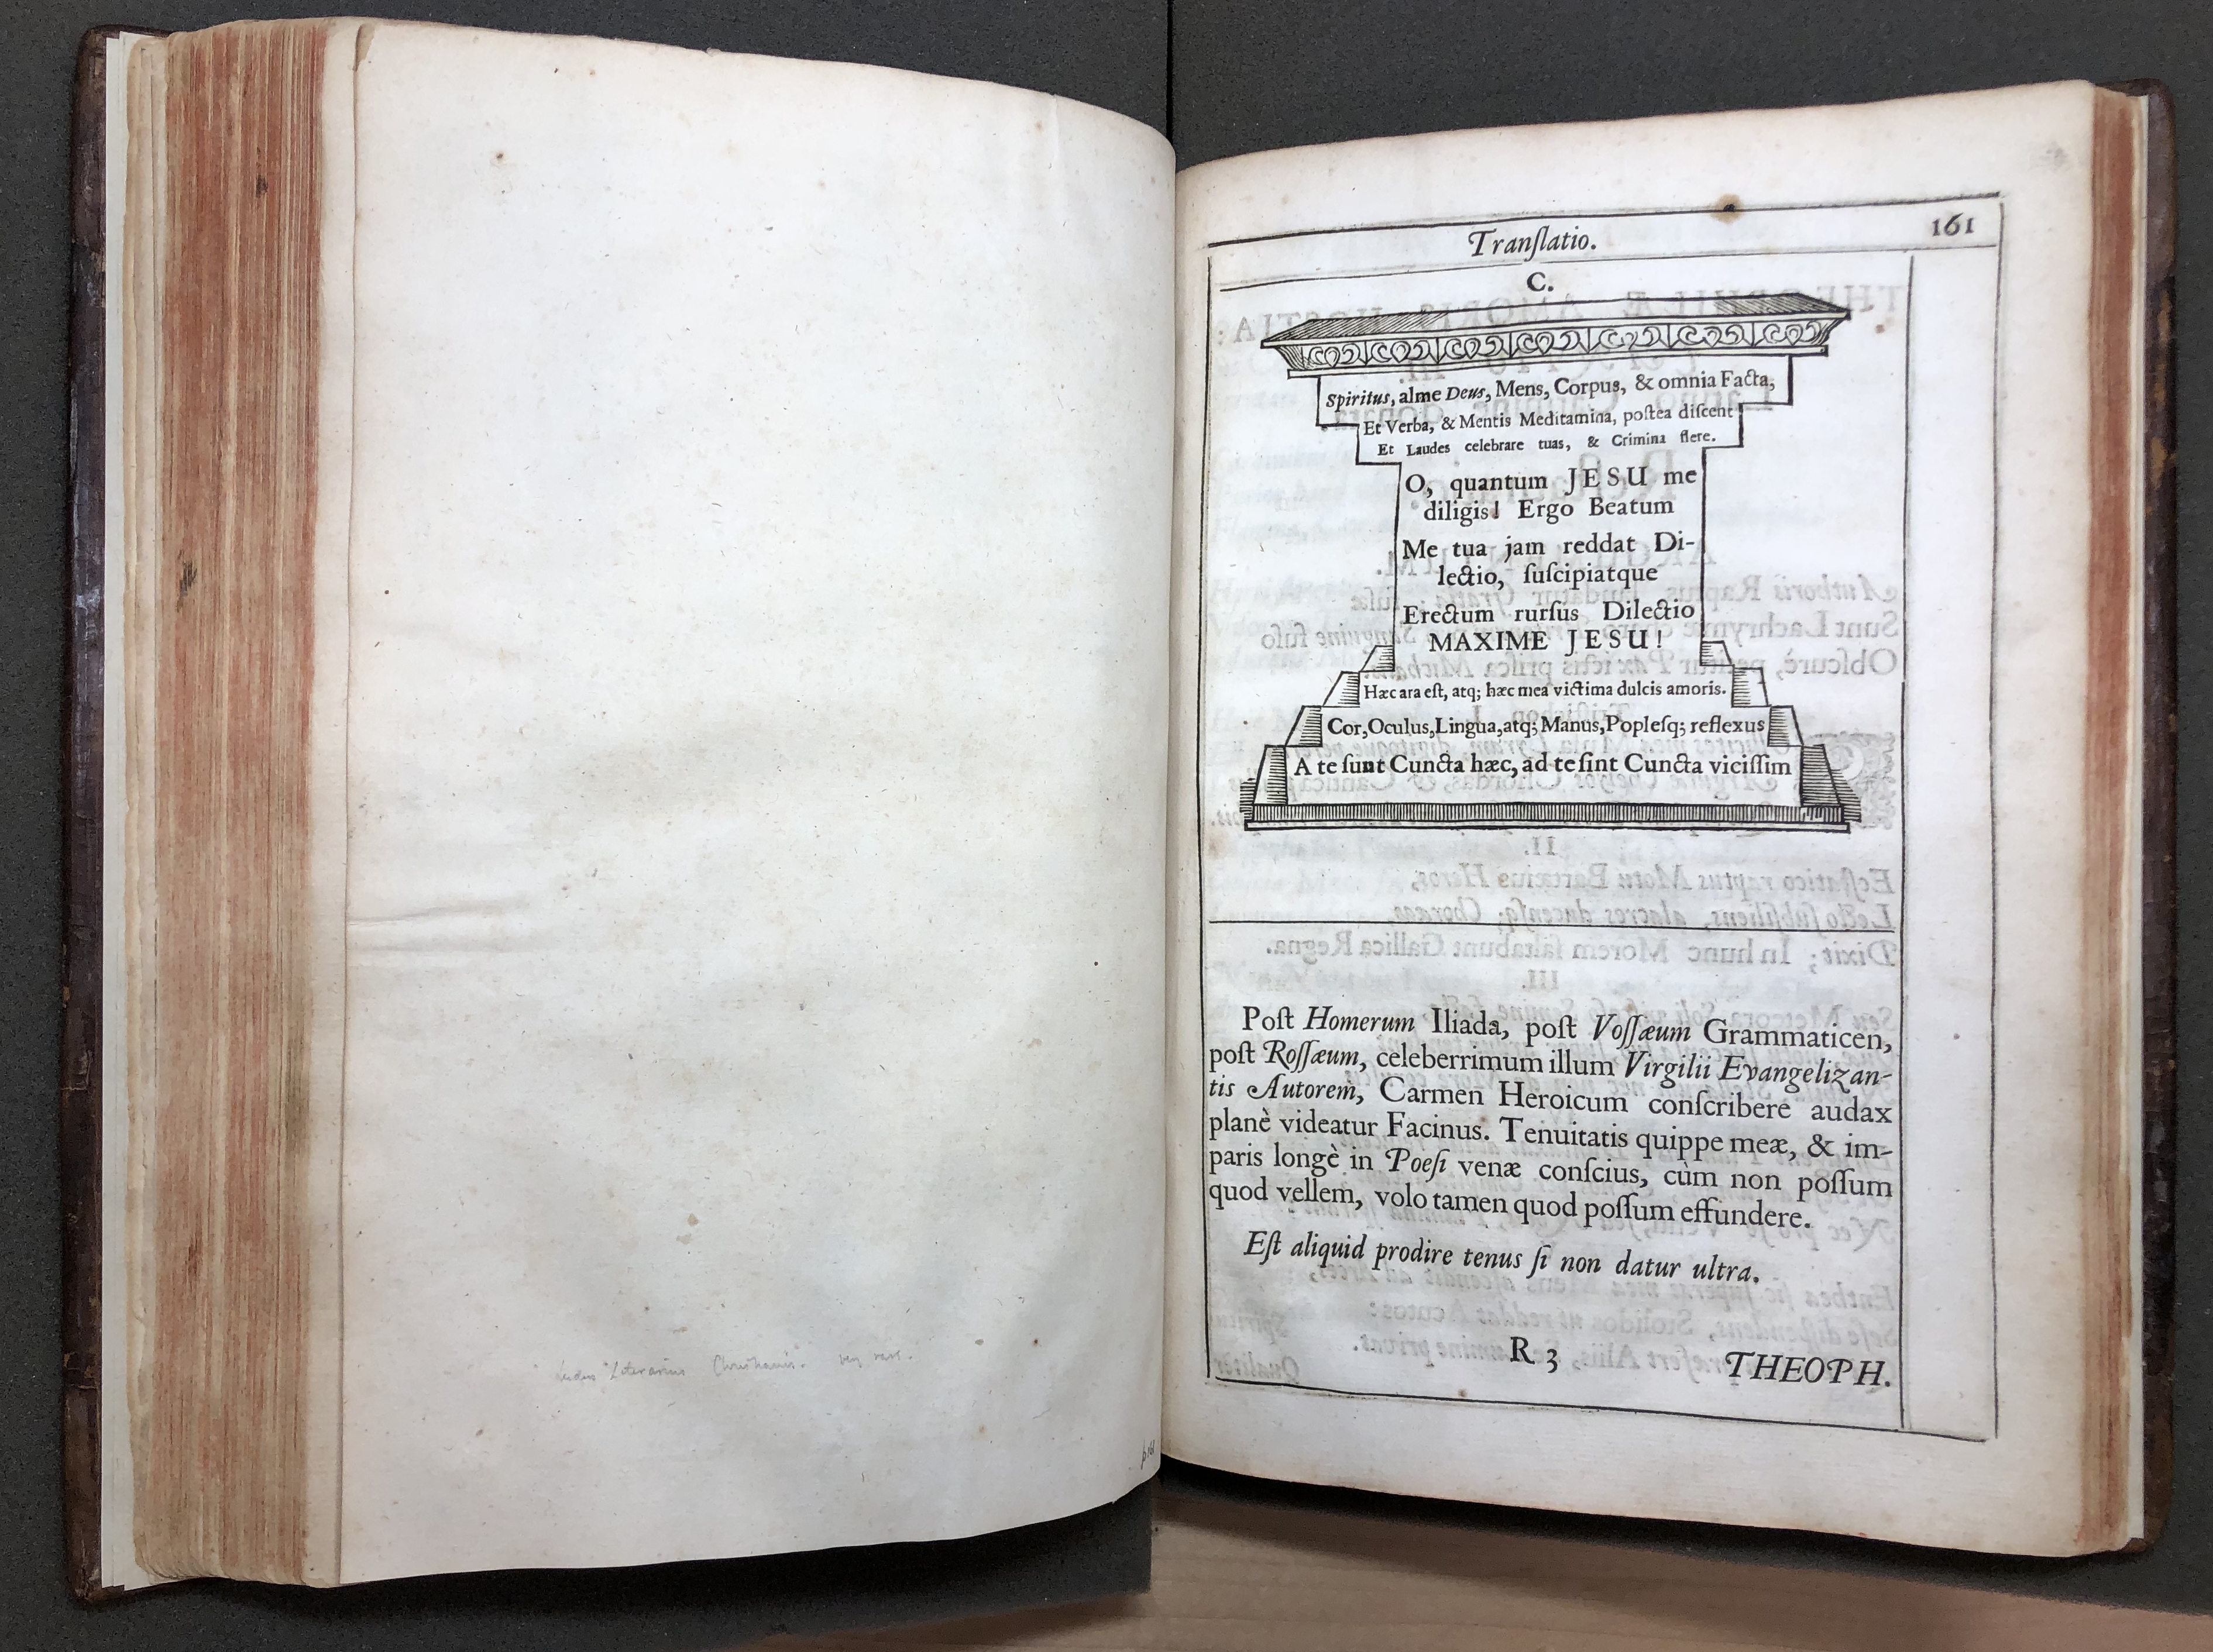 Tranſlatio.
161
C.
Spiritus, alme Deus, Mens, Corpus, & omnia Facta,
Et Verba, & Mentis Meditamina, poſtea diſcent
Et Laudes celebrare tuas, & Crimina flere.
O, quantum JESU me
diligis! Ergo Beatum
Me tua jam reddat Di-
lectio, ſuſcipiatque
Erectum rurſus Dilectio
MAXIME JESU!
Hæc ara eſt, atq; hæc mea victima dulcis amoris.
Cor, Oculus, Lingua, atq; Manus, Popleſq; reflexus
A te ſunt Cuncta hæc, ad te ſint Cuncta viciſſim
Poſt Homerum Iliada, poſt Voſſæum Grammaticen,
poſt Roſſæum, celeberrimum illum Virgilii Evangelizan-
tis Autorem, Carmen Heroicum conſcribere audax
planè videatur Facinus. Tenuitatis quippe meæ, & im-
paris longè in Poeſi venæ conſcius, cùm non poſſum
quod vellem, volo tamen quod poſſum effundere.
Eſt aliquid prodire tenus ſi non datur ultra.
R 3
THEOPH.
Ludus Literarius Christianus. very rare.
p 161